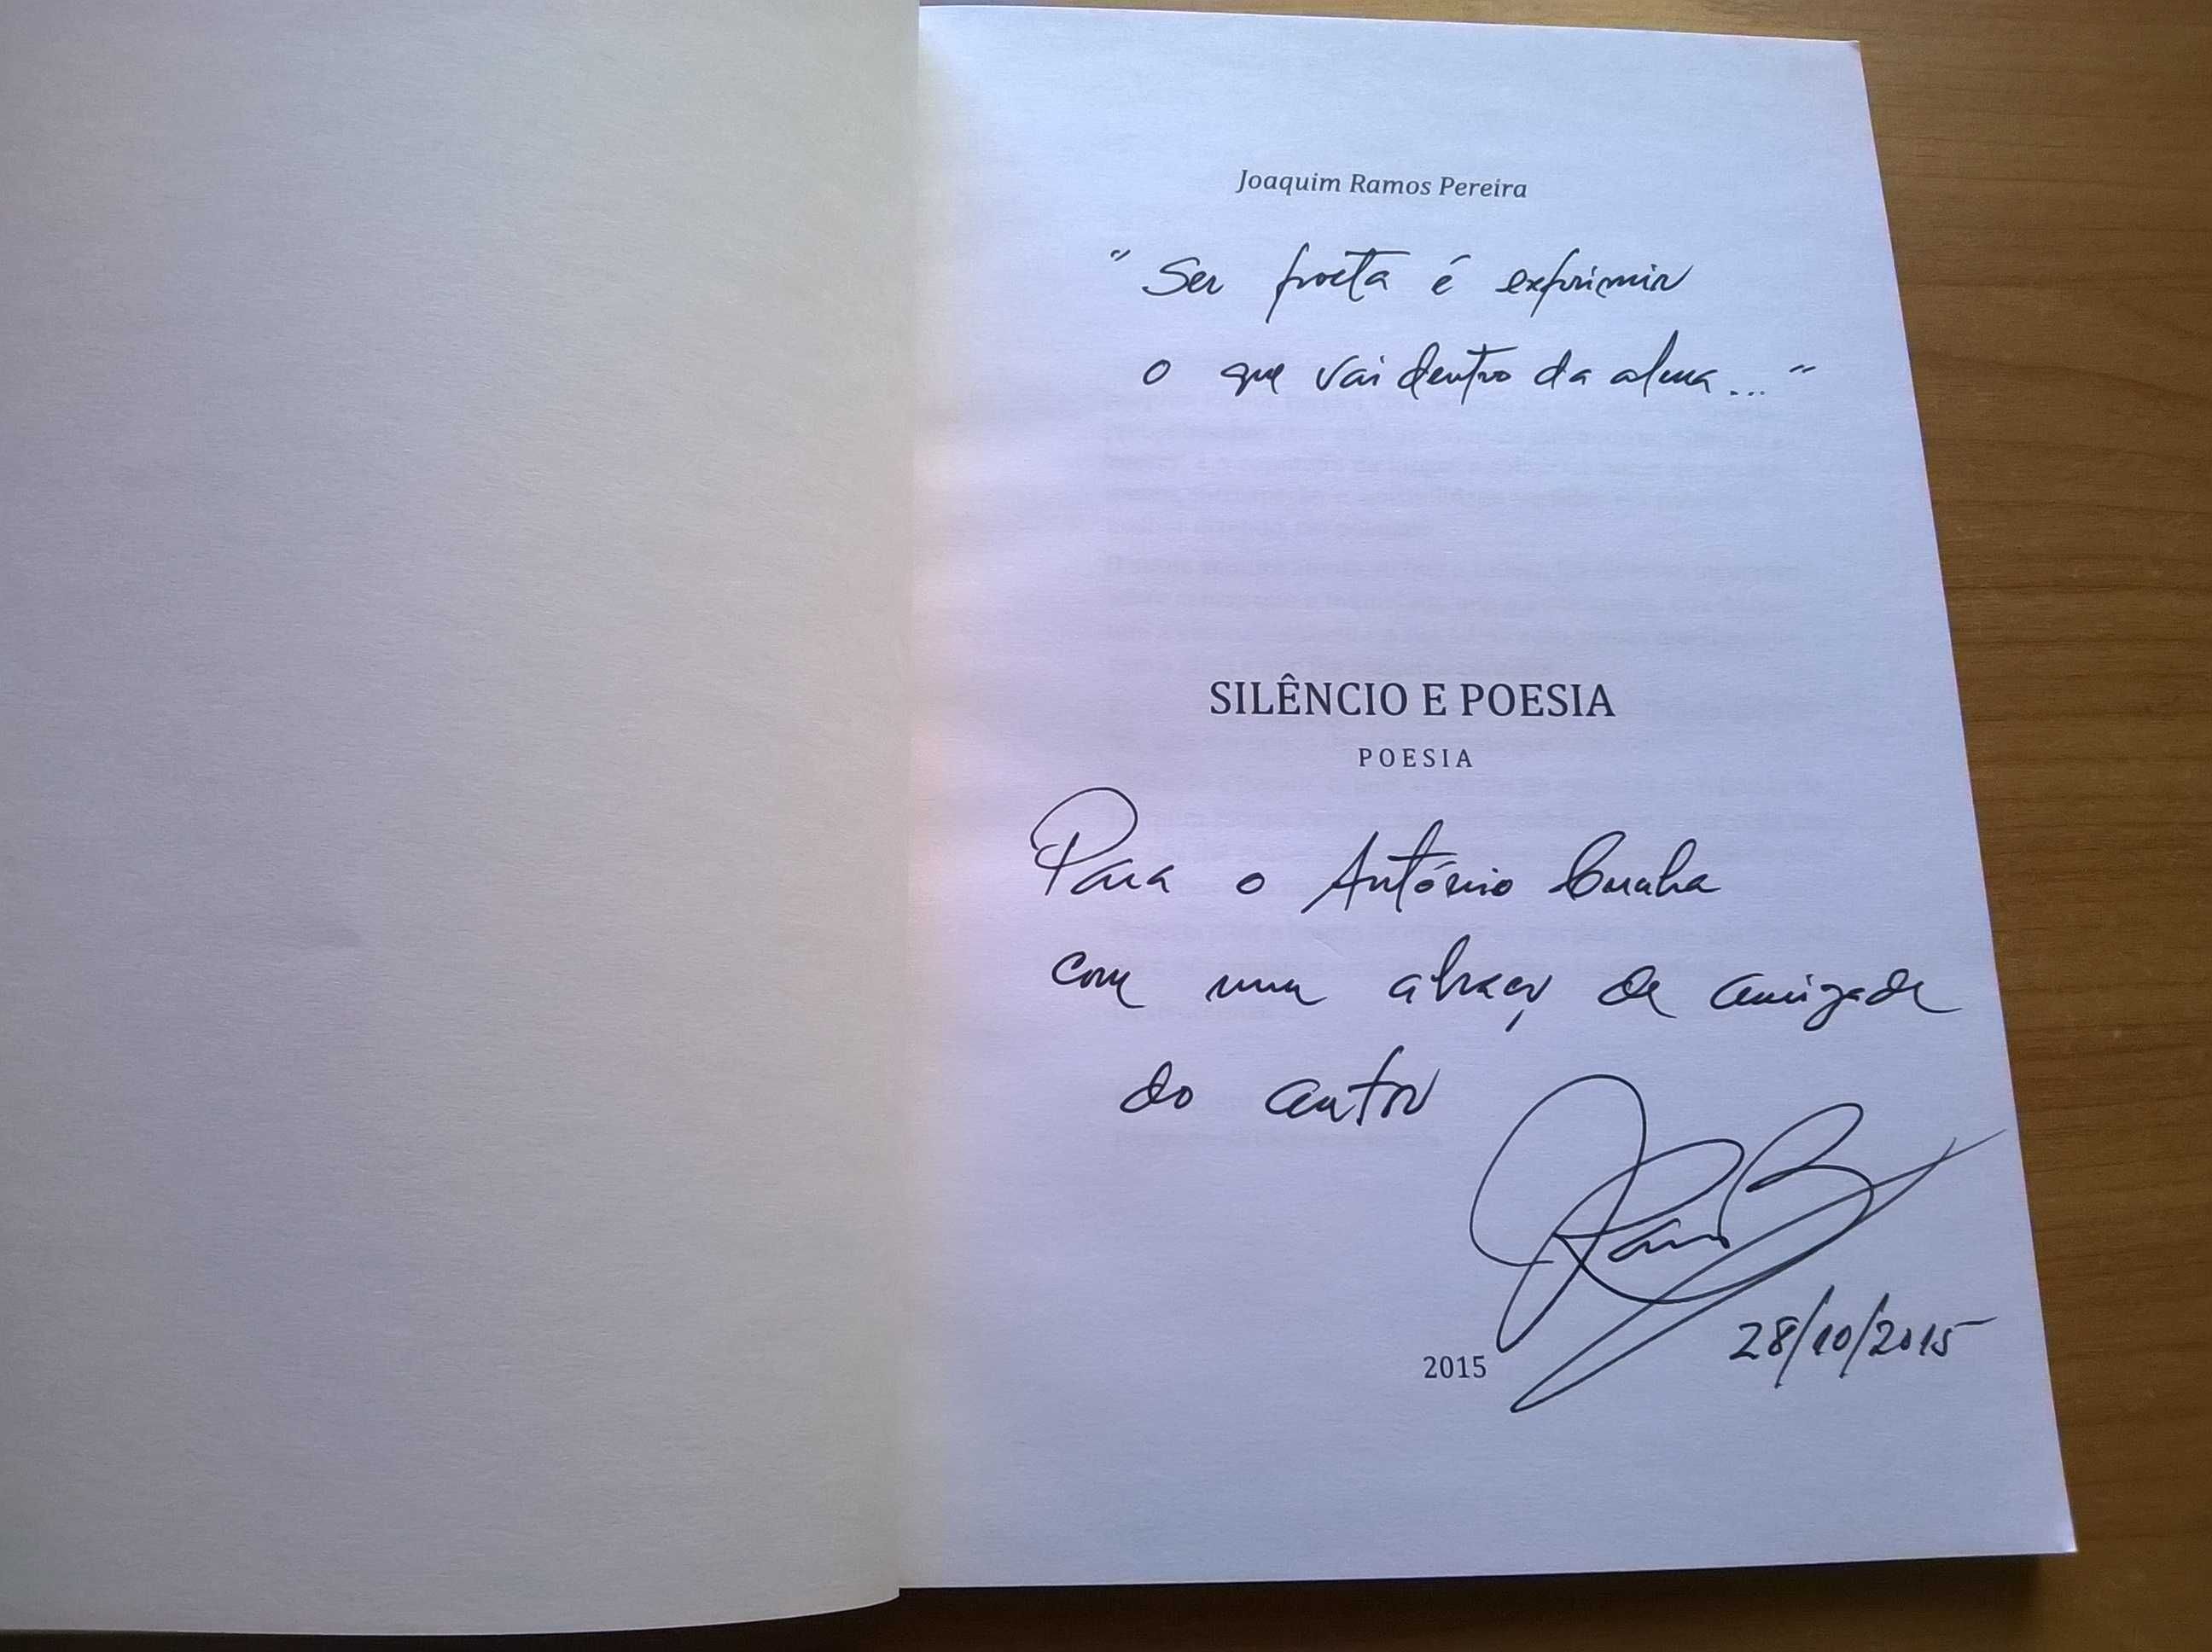 Joaquim Ramos Pereira
" Ser poeta é exprimir
o que vai dentro da alma... "
SILÊNCIO E POESIA
POESIA
Para o António Cunha
com um abraço de amizade
do autor
2015
28/10/2015